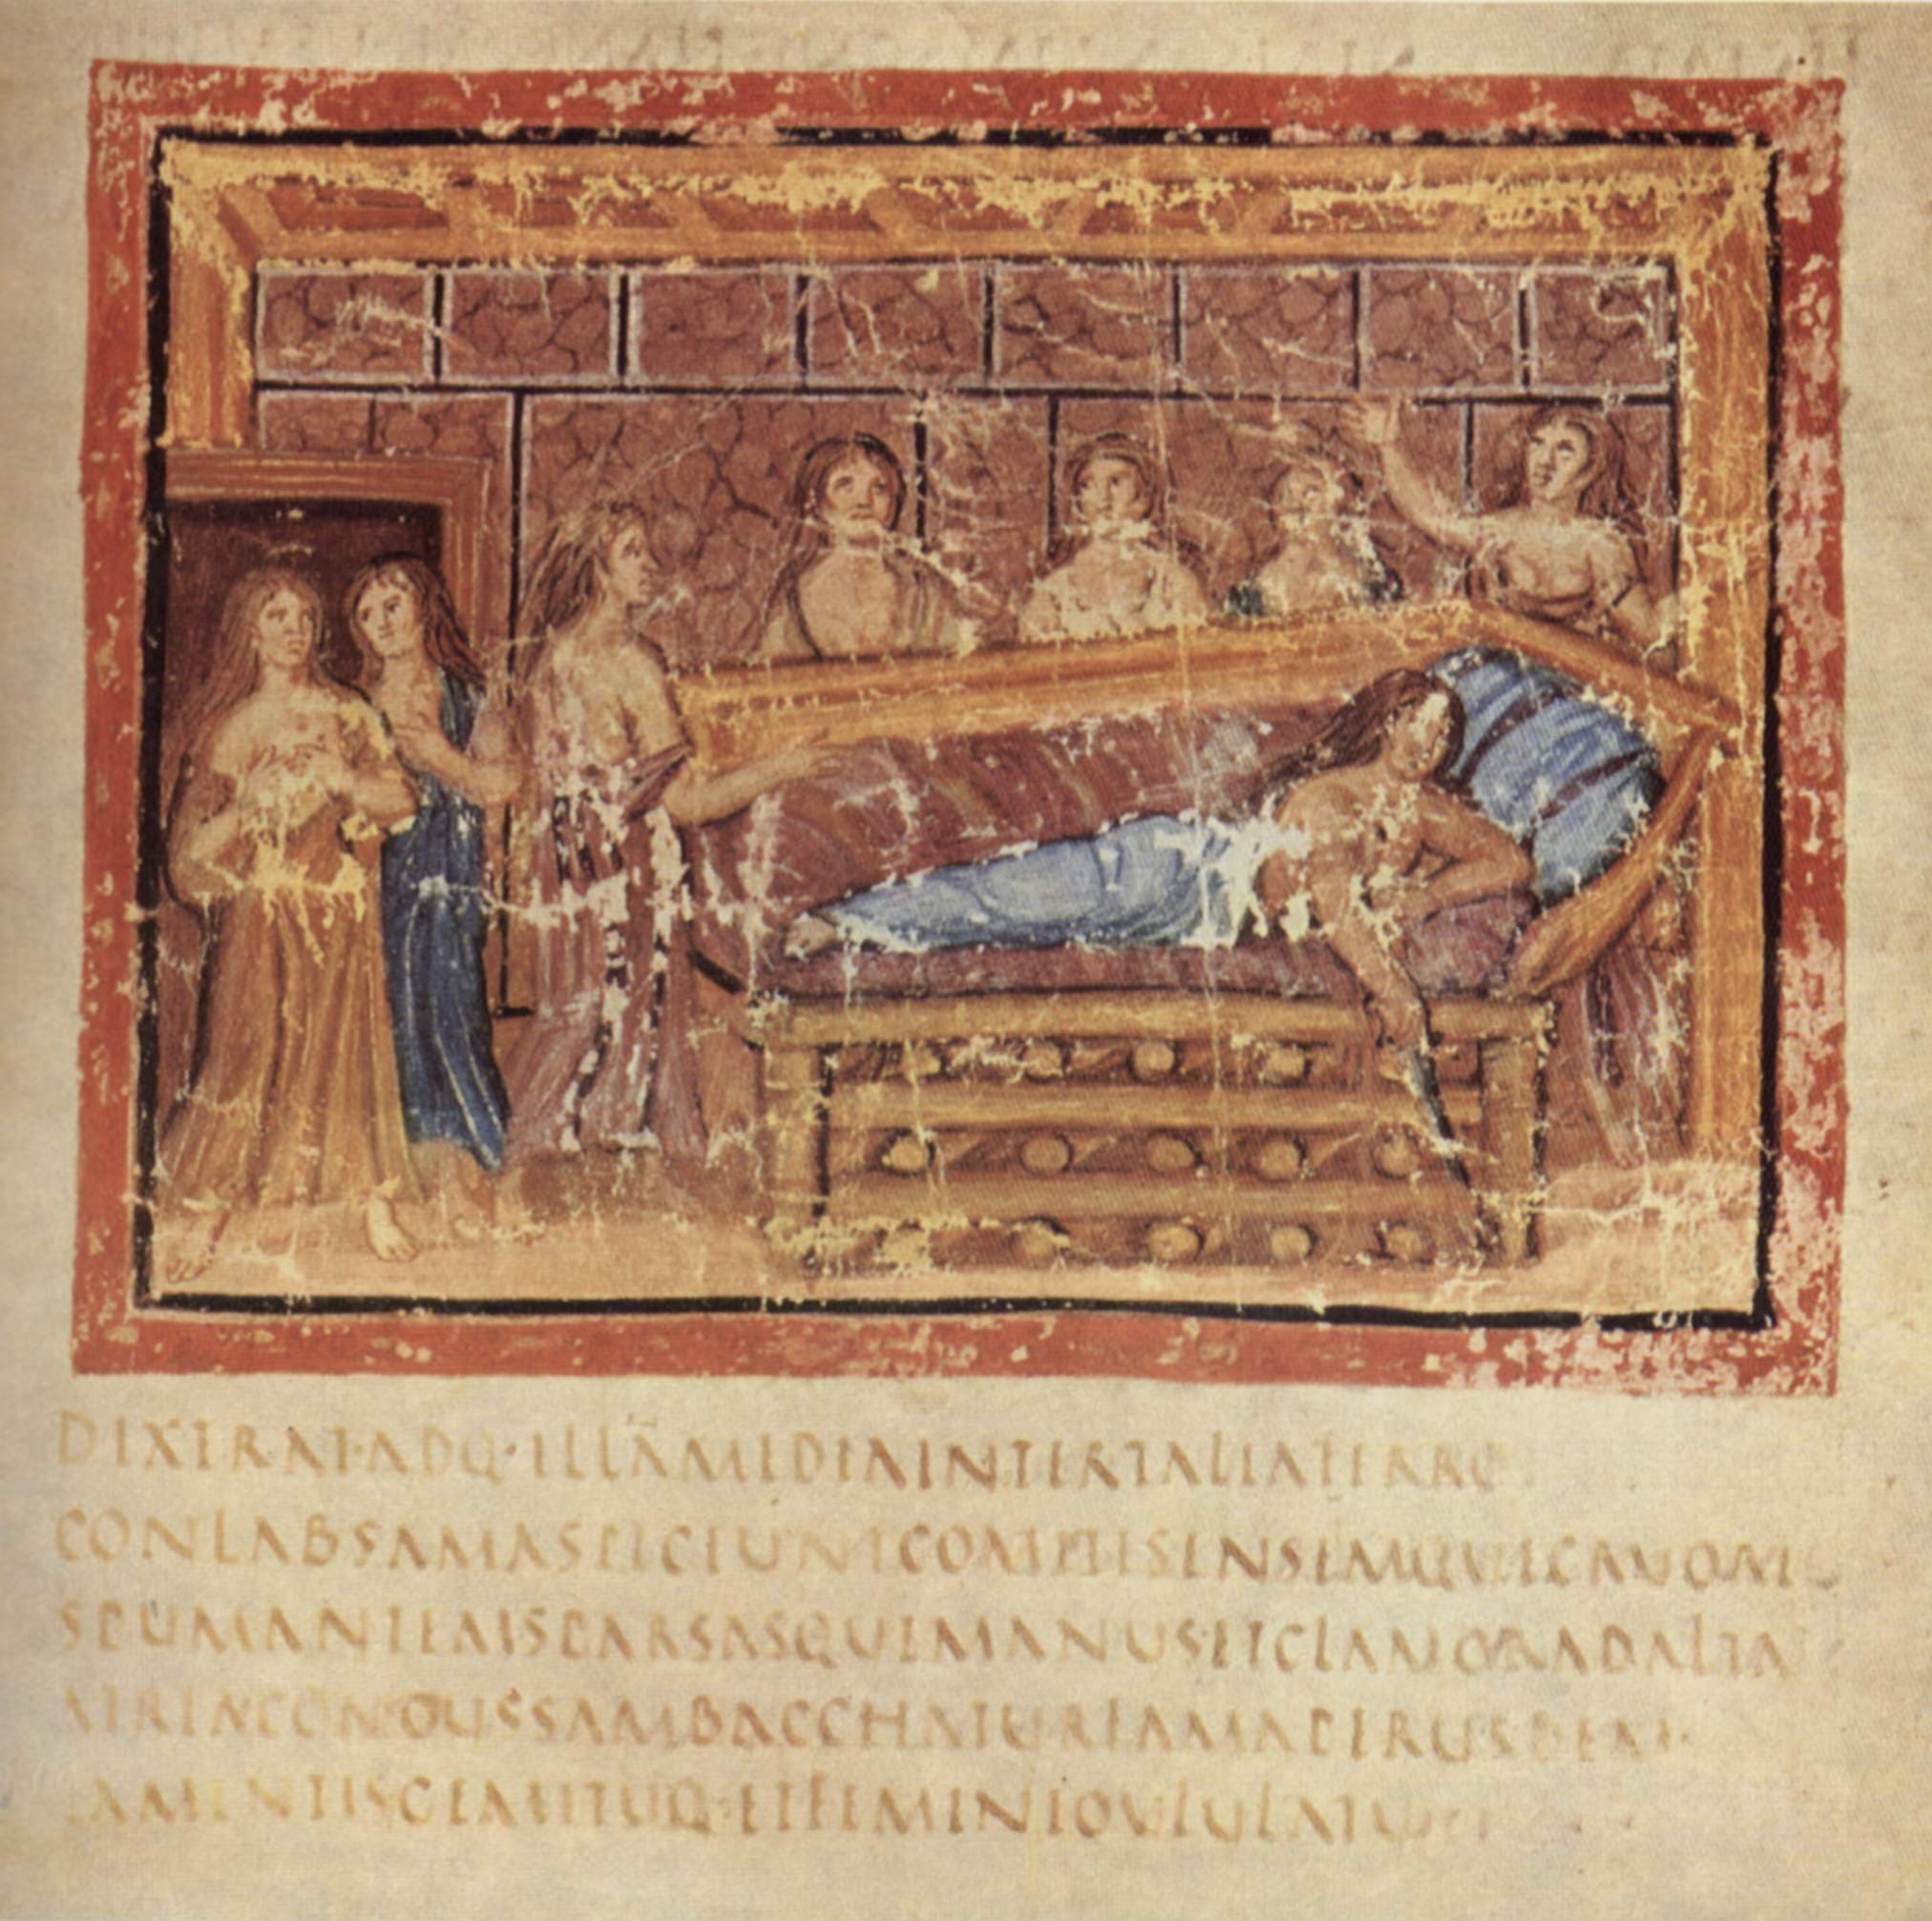 DIXERAT·ADQ·ILLAMMEDIAINTERTALIAFERRO
CONLABSAMASPICIUNTCOMITESENSEMQUECRUORE
SPUMANTEMSPARSASQUEMANUS·ITCLAMORADALTA
ATRIACONCUSSAMBACCHATURFAMAPERURBEM·
LAMENTISGEMITUQ·ETFEMINEOULULATU